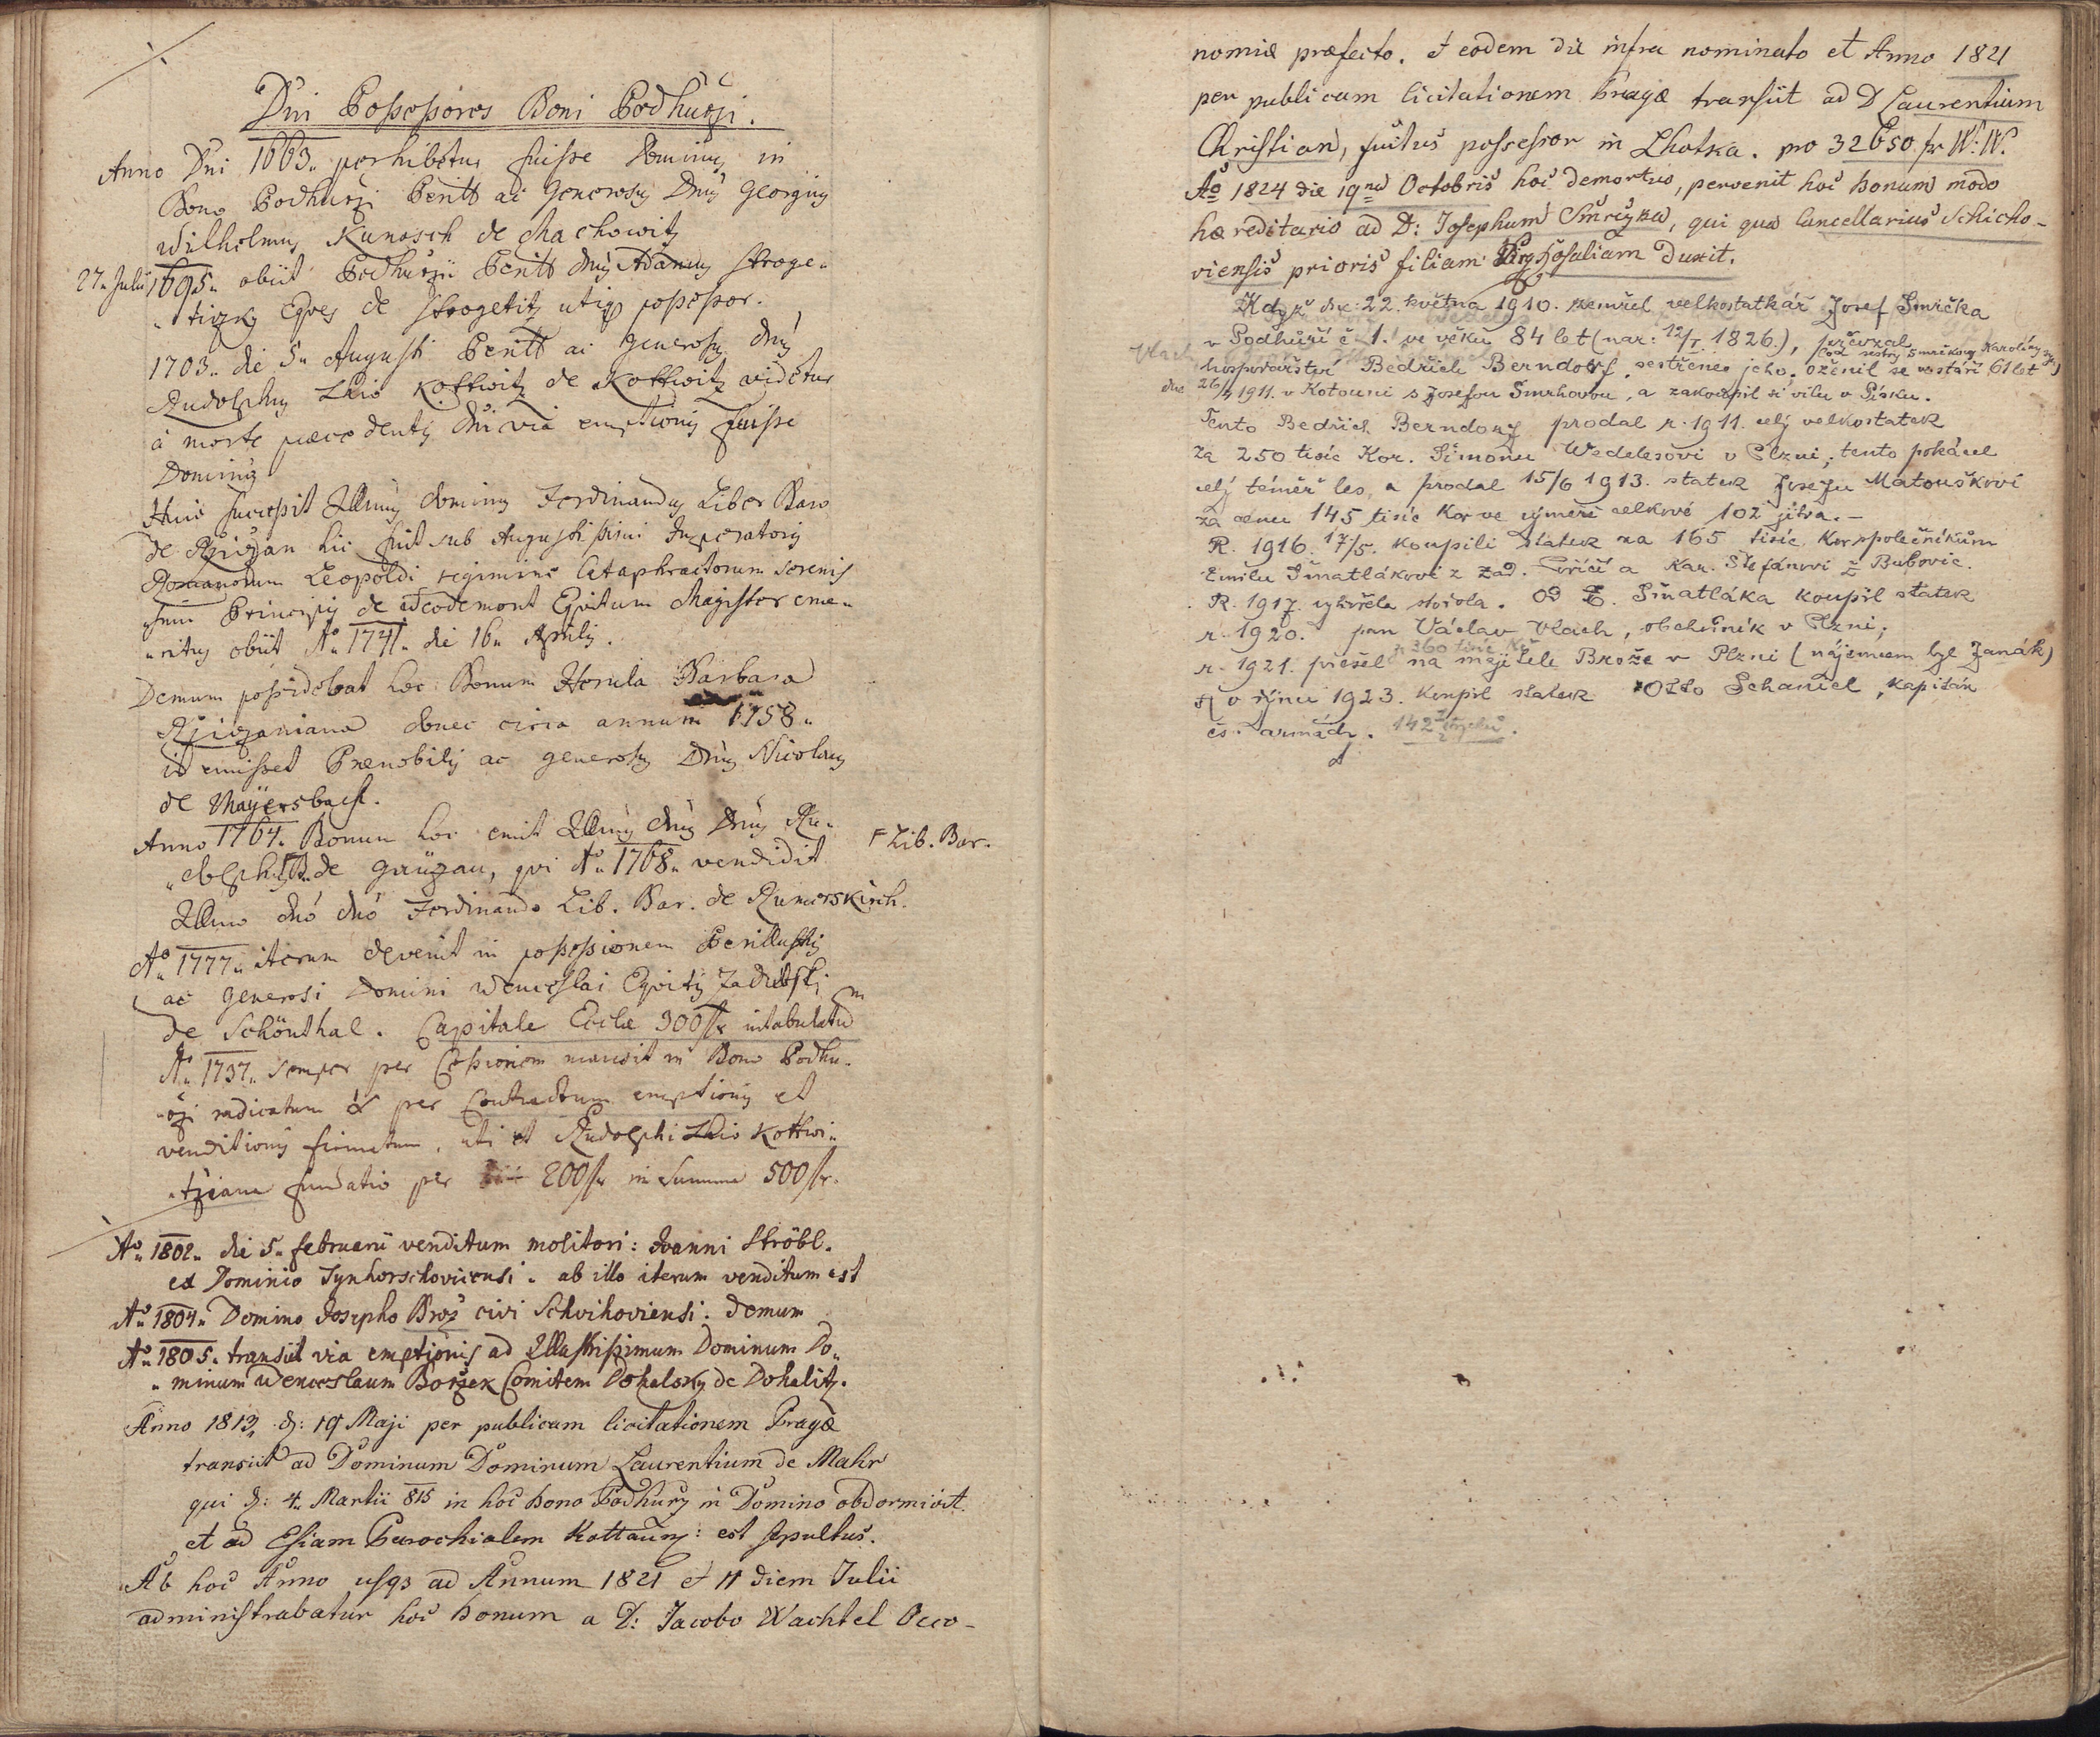 Dni Possessores Boni Podhurzi.
Anno Dni 1663. perhibetur fuisse Dominus in
Bono Podhurzi Perill ac Generosus Dnus Georgius
Wilhelmus Kunasch de Machowitz
27. Julii 1695. obiit Podhurzii Perill dnus Adamus Stroge„
„tizky Eques de Strogetitz utiq possessor.
1703. die 5. Augusti Perill ac generosus dnus
Rudolphus Kottwitz de Kottwitz videtur
à morte praecedentis dni via emptionis fuisse
Dominus
Huic successit Illmus dominus Ferdinandus Liber Baro
de Rziczan hic fuit sub Augustissimi Imperatoris
Romanorum Leopoldi regimine Cataphractorum serenis
simi Principis de Weodemont Equitum Magister eme„
„ritus obiit Ao 1741. die 16. Aprilis.
Demum possidebat hoc Bonum Herula Barbara
Rziczaniana donec circa annum 1758.
id emisset Praenobilis ac generosus Dnus Nicolaus
de Mayersbach.
Anno 1764. Bonum hoc emit Illmus dnus Dnus Ru„
F Lib. Bar.
„dolphus de Grüzau, qui Ao 1768. vendidit
Illmo dno dno Ferdinando Lib. Bar. de Rumerskirch.
Ao 1777. iterum devenit in possessionem Perillustris
ac generosi Domini Wenceslai Equitis Zadubski
de Schönthal. Capitale Eccle 300 fr intabulatum
Ao 1737. semper per Cessionem mansit in Bono Podhu„
„rzi radicatum & per Contractum emptionis et
venditionis firmatum, uti et Rudolphi Kottwi„
„tziana fundatio per 200 fr in Summa 500 fr.
Ao 1802. die 5. februarii venditum molitori: Joanni Ströbl.
ex Dominio Tynhorschoviensi. ab illo iterum venditum est
Ao 1804. Domino Josepho Broz civi Schvihoviensi. demum
Ao 1805. transiit via emptionis ad Illustrissimum Dominum Do„
„minum Wenceslaum Borzek Comitem Dohalsky de Dohalitz.
Anno 1813, d: 19 Maji per publicam licitationem Pragae
transiit ad Dominum Dominum Laurentium de Mahr
qui d: 4. Martii 815 in hoc bono Podhurz in Domino obdormivit.
et ad Esiam Parochialem Kottaunz: est sepultus.
Ab hoc Anno usq3 ad Annum 1821 et 11 diem Julii
administrabatur hoc bonum a D: Jacobo Wachtel Oeco-
nomiae praefecto. Et eodem die infra nominato et Anno 1821
per publicam licitationem Pragae transiit ad D Laurentium
Christian, possessor in Lhotka. pro 32650 fr W:W.
Ao 1824 die 19na Octobris hoc demortuo, pervenit hoc bonum modo
haereditario ad D: Josephum Smrczka, qui qua Cancellarius Schicho-
viensis prioris filiam Rosaliam duxit.
Když dne 22. května 1910. zemřel velkostatkář Josef Smrčka
v Podhůří č 1. ve věku 84 let (nar: 12/I. 1826.), převzal
(od sestry Smrčkovy Karoliny syn)
hospodářství Bedřich Berndorf, sestřenec jeho. Oženil se ve stáří 61 let
dne 26/4 1911. v Kotouni s Josefou Smrhovou, a zakoupil si vilu v Písku.
Tento Bedřich Berndorf prodal r. 1911. celý velkostatek
za 250 tisíc Kor. Šimonu Wedelesovi v Plzni; tento pokácel
celý téměř les, a prodal 15/6 1913. statek Josefu Matouškovi
za cenu 145 tisíc Kor ve výměře celkové 102 jitra.-
R. 1916. 17/5. koupili statek za 165 tisíc Kor společníkům
Emilu Šmatlákovi z Zad. Poříčí a Kar. Štefánovi z Bubovic.
R. 1917. vyhořela stodola. Od E. Šmatláka koupil statek
r. 1920. pan Václav Vlach, obchodník v Plzni;
za 360 tisíc Kč
r. 1921. přešel na majitele Brože v Plzni (nájemcem byl Janák)
v říjnu 1923. koupil statek Otto Schaniel, kapitán
čs. armády. 142